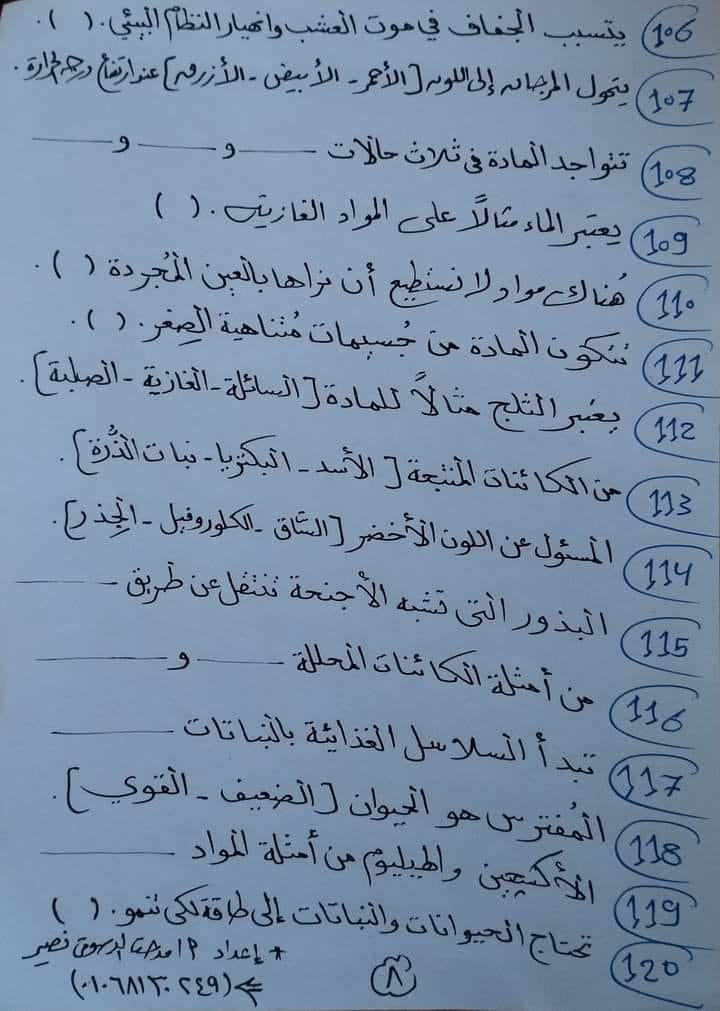 106 يتسبب الجفاف في موت العشب وانهيار النظام البيئي. ( ).
107 يتحول المرجان إلى اللون [الأحمر - الأبيض - الأزرق] عند ارتفاع درجة الحرارة.
108 تتواجد المادة في ثلاث حالات ــــــ و ــــــ و ــــــ
109 يعتبر الماء مثالاً على المواد الغازية. ( )
110 هُناك مواد لا نستطيع أن نراها بالعين المُجردة ( ).
111 تتكون المادة من جُسيمات مُتناهية الصِغر. ( ).
112 يعتبر الثلج مثالاً للمادة [السائلة - الغازية - الصلبة].
113 من الكائنات المنتجة [الأسد - البكتريا - نبات الذُّرة].
114 المسئول عن اللون الأخضر [السَّاق - الكلوروفيل - الجِذر].
115 البذور التي تشبه الأجنحة تنتقل عن طريق ــــــ
116 من أمثلة الكائنات المحللة ــــــ و ــــــ
117 تبدأ السلاسل الغذائية بالنباتات ــــــ
118 المُفترس هو الحيوان [الضعيف - القوي].
119 الأكسجين والهيليوم من أمثلة المواد ــــــ
120 تحتاج الحيوانات والنباتات إلى طاقة لكي تنمو. ( )
* إعداد أ / نصير
٨
(٠١٠٦٨١٣٠٢٤٩)